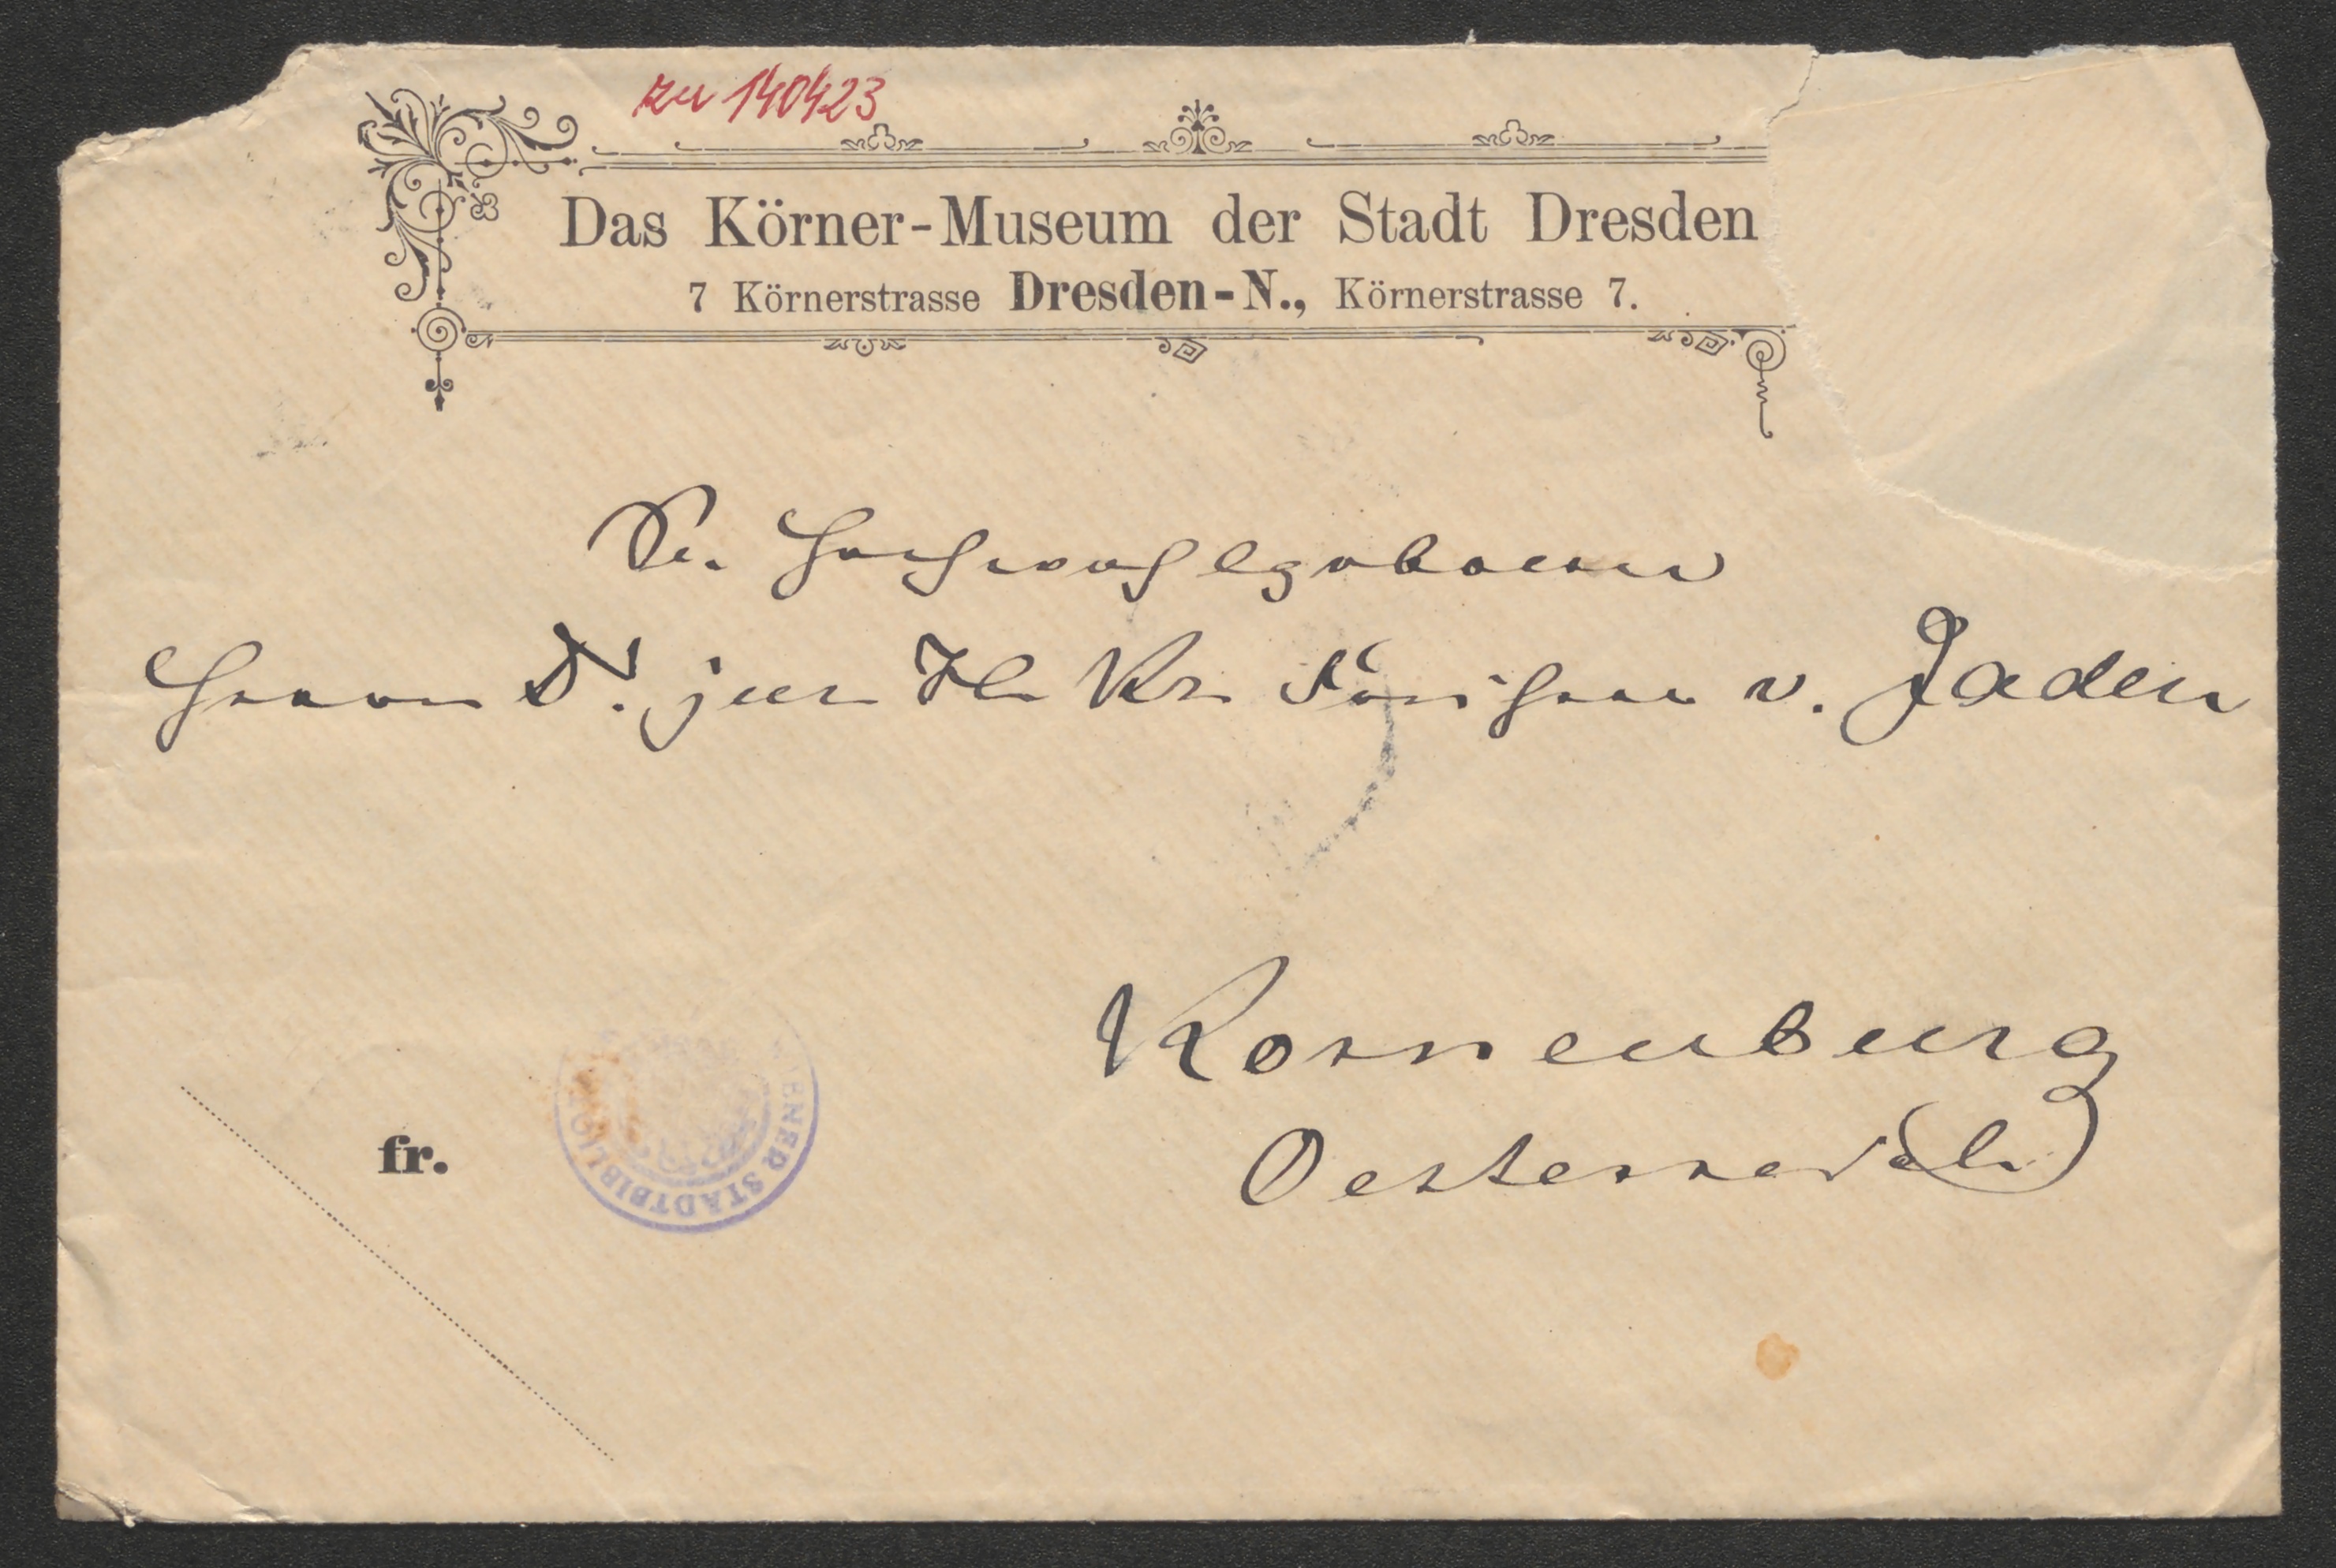 zu 140423
Das Körner-Museum der Stadt Dresden
7 Körnerstrasse Dresden-N., Körnerstrasse 7.
Sr. Hochwohlgeboren
Herrn Dr. jur Freiherr v. Jaden
Kornenburg
Oesterreich
fr.
WIENER STADTBIBLIO